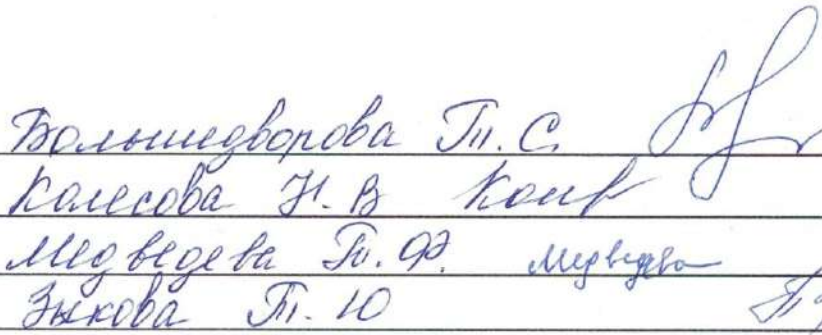 Большедворова Т. С.
Колесова Н. В
Медведева Т. Ф. Медведева
Зыкова Т. Ю